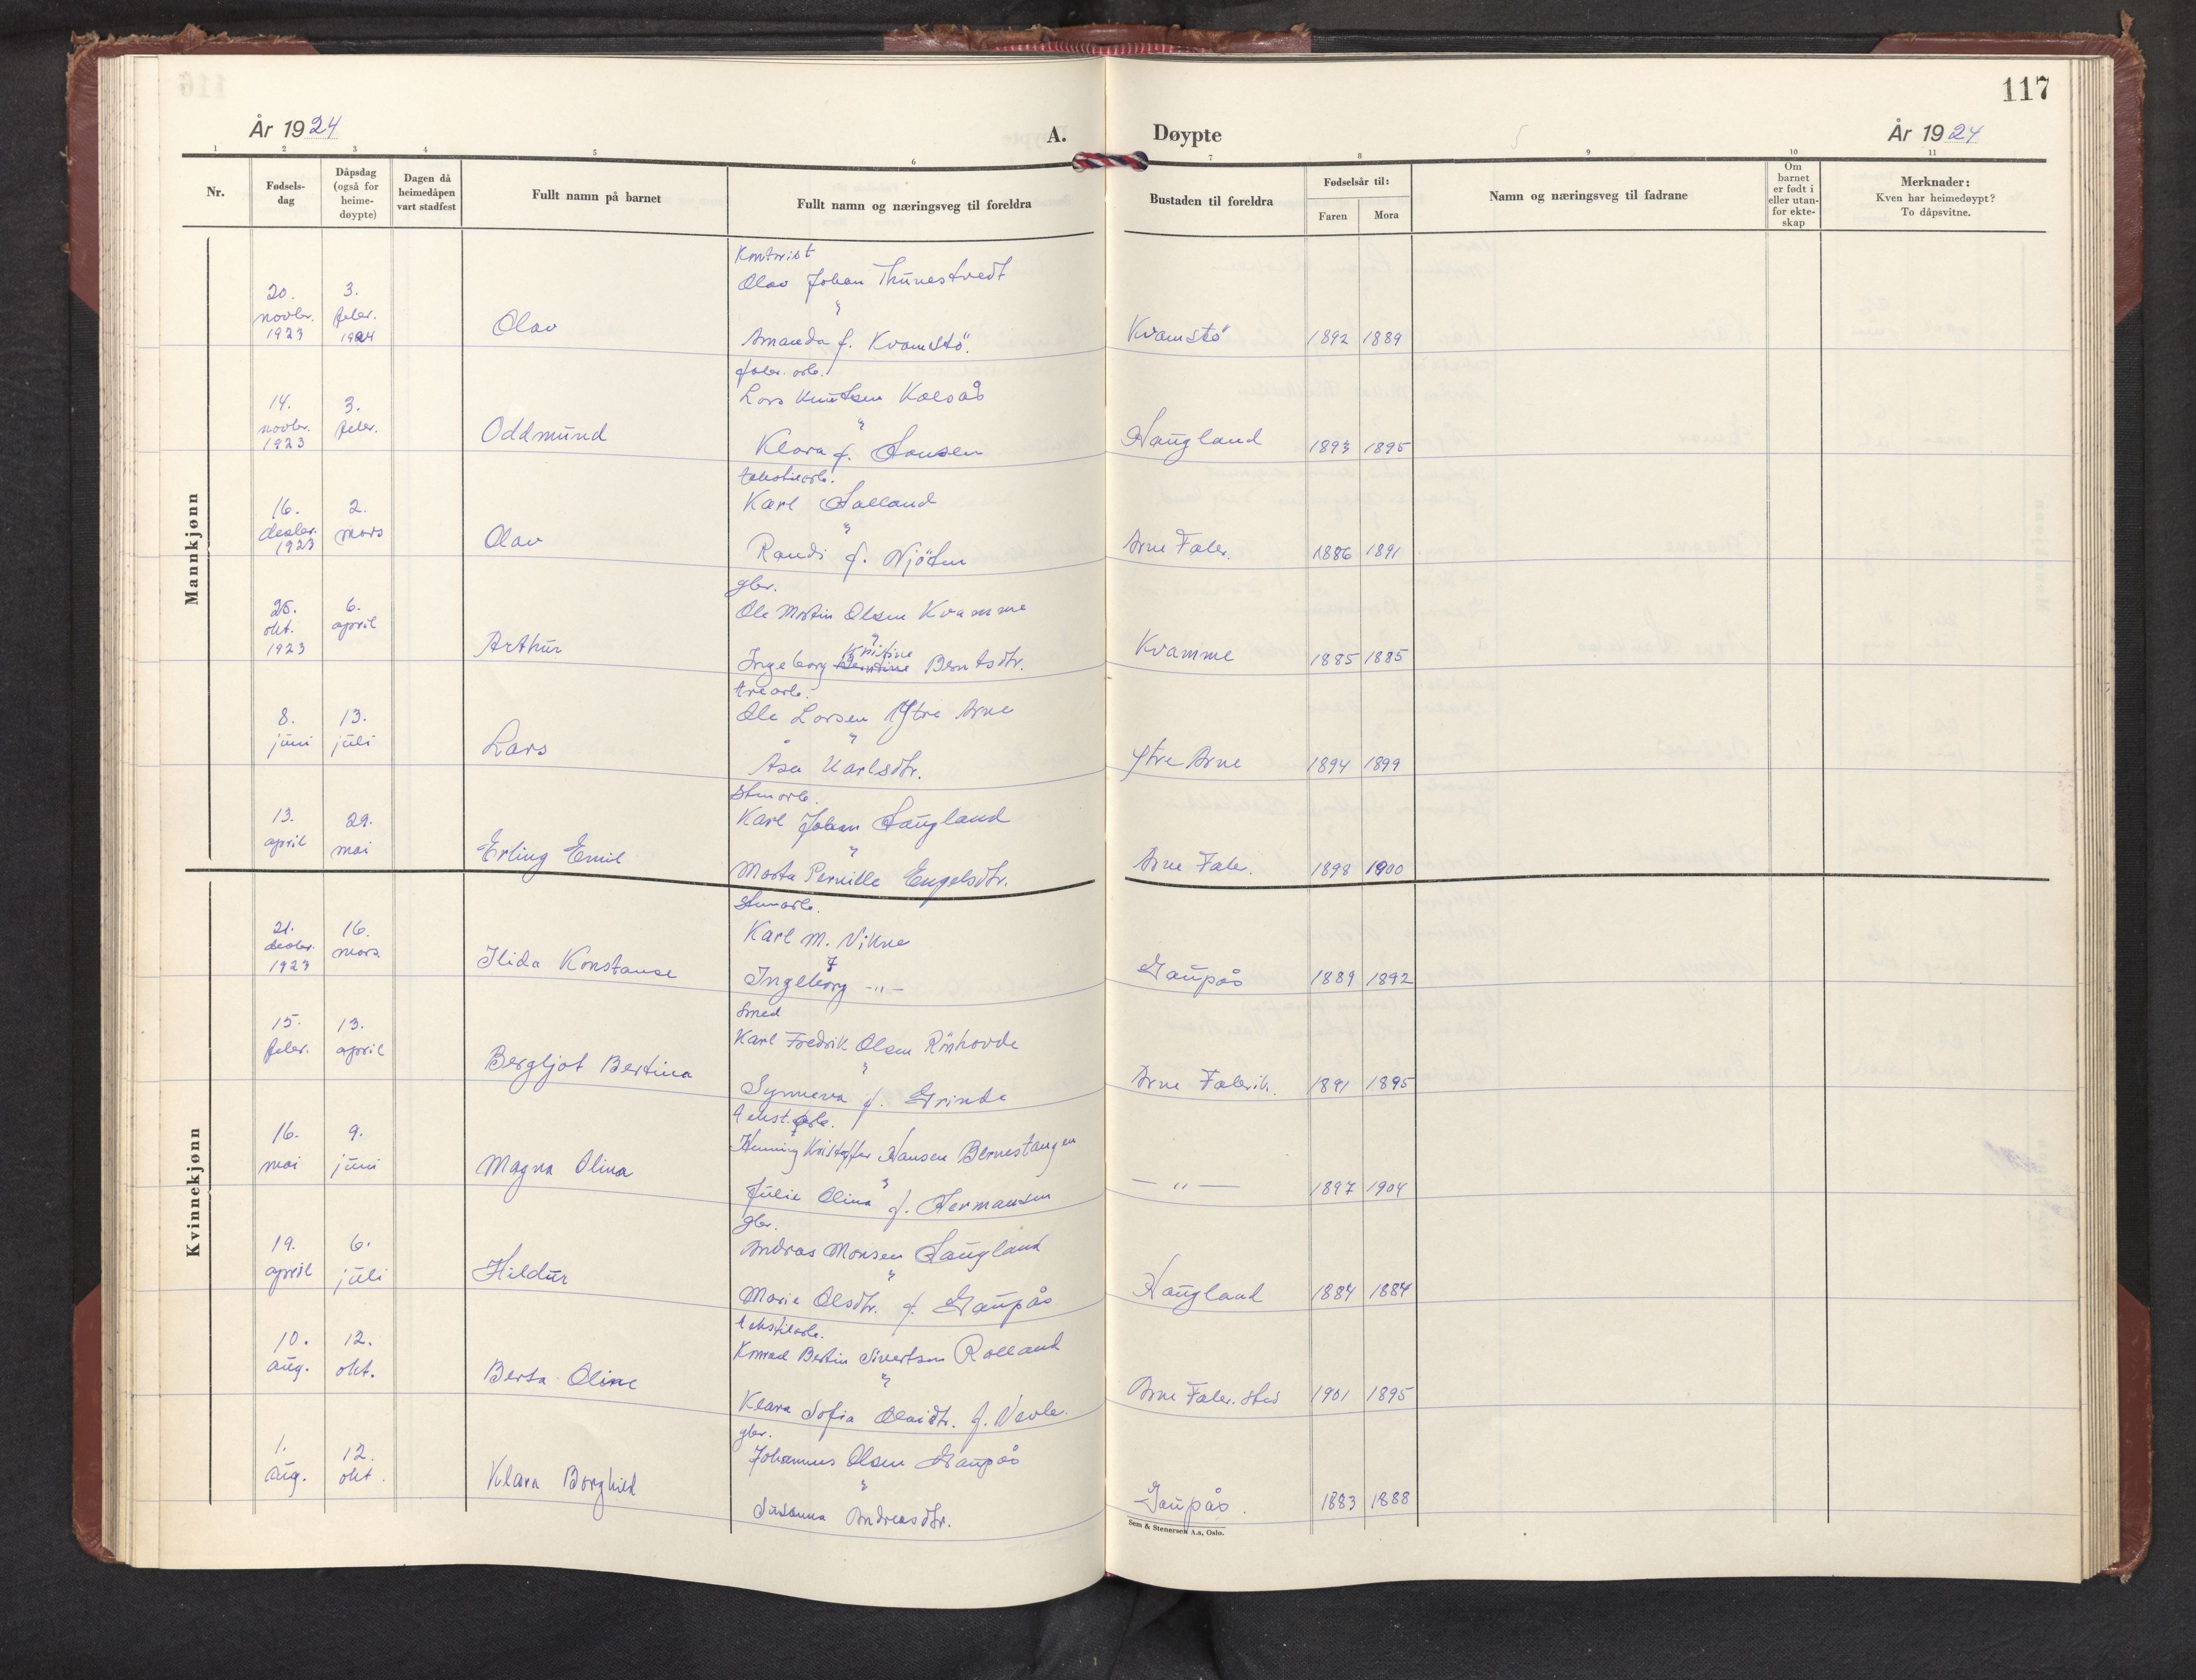 117
År 1924
A. Døypte
År 1924
1 2 3 4 5 6 7 8 9 10 11
Nr.
Fødsels-
dag
Dåpsdag
(også for
heime-
døypte)
Dagen då
heimedåpen
vart stadfest
Fullt namn på barnet
Fullt namn og næringsveg til foreldra
Bustaden til foreldra
Fødselsår til:
Faren Mora
Namn og næringsveg til fadrane
Om
barnet
er født i
eller utan-
for ekte-
skap
Merknader:
Kven har heimedøypt?
To dåpsvitne.
Mannkjønn
Kontorist
20. novbr. 1923 3. febr. 1924 Olav Olav Johan Thunestvedt
"
Amanda f. Kvamstö. Kvamstö 1892 1889
fabr. arb.
14. novbr. 1923 3. febr. Oddmund Lars Knutsen Kalsås
"
Klara f. Hansen Haugland 1893 1895
tekstilarb.
16. desbr. 1923 2. mars Olav Karl Salland
"
Randi f. Njösen Arne Fabr. 1886 1891
gbr.
25. okt. 1923 6. april Arthur Ole Martin Olsen Kvamme
"
Kristine
Ingeborg Berntsdtr. Kvamme 1885 1885
trearb.
8. juni 13. juli Lars Ole Larsen Ytre Arne
"
Åsa Karlsdtr. Ytre Arne 1894 1899
stenarb.
13. april 29. mai Erling Emil Karl Johan Haugland
"
Marta Pernille Engelsdtr. Arne Fabr. 1898 1900
Kvinnekjønn
stenarb.
21. desbr. 1923 16. mars Ilida Konstanse Karl M. Vikne
"
Ingeborg -"- Gaupås 1889 1892
Smed
15. febr. 13. april Bergljot Bertina Karl Fredrik Olsen Rönhovde
"
Synneva f. Grinde Arne Fabrik. 1891 1895
tekst. arb.
16. mai 9. juni Magna Olina Henning Kristoffer Hansen Bernestangen
"
Julie Olina f. Hermansen — " — 1897 1904
gbr.
19. april 6. juli Hildur Andras Monsen Haugland
"
Marie Olsdtr. f. Gaupås Haugland 1884 1884
tekstilarb.
10. aug. 12. okt. Berta Oline Konrad Bertin Sivertsen Rolland
"
Klara Sofia Olaidtr. f. Nævle. Arne Fabr. sted 1901 1895
gbr.
1. aug. 12. okt. Klara Borghild Johannes Olsen Gaupås
"
Susanna Andreasdtr. Gaupås. 1883 1888
Sem & Stenersen A.s, Oslo.